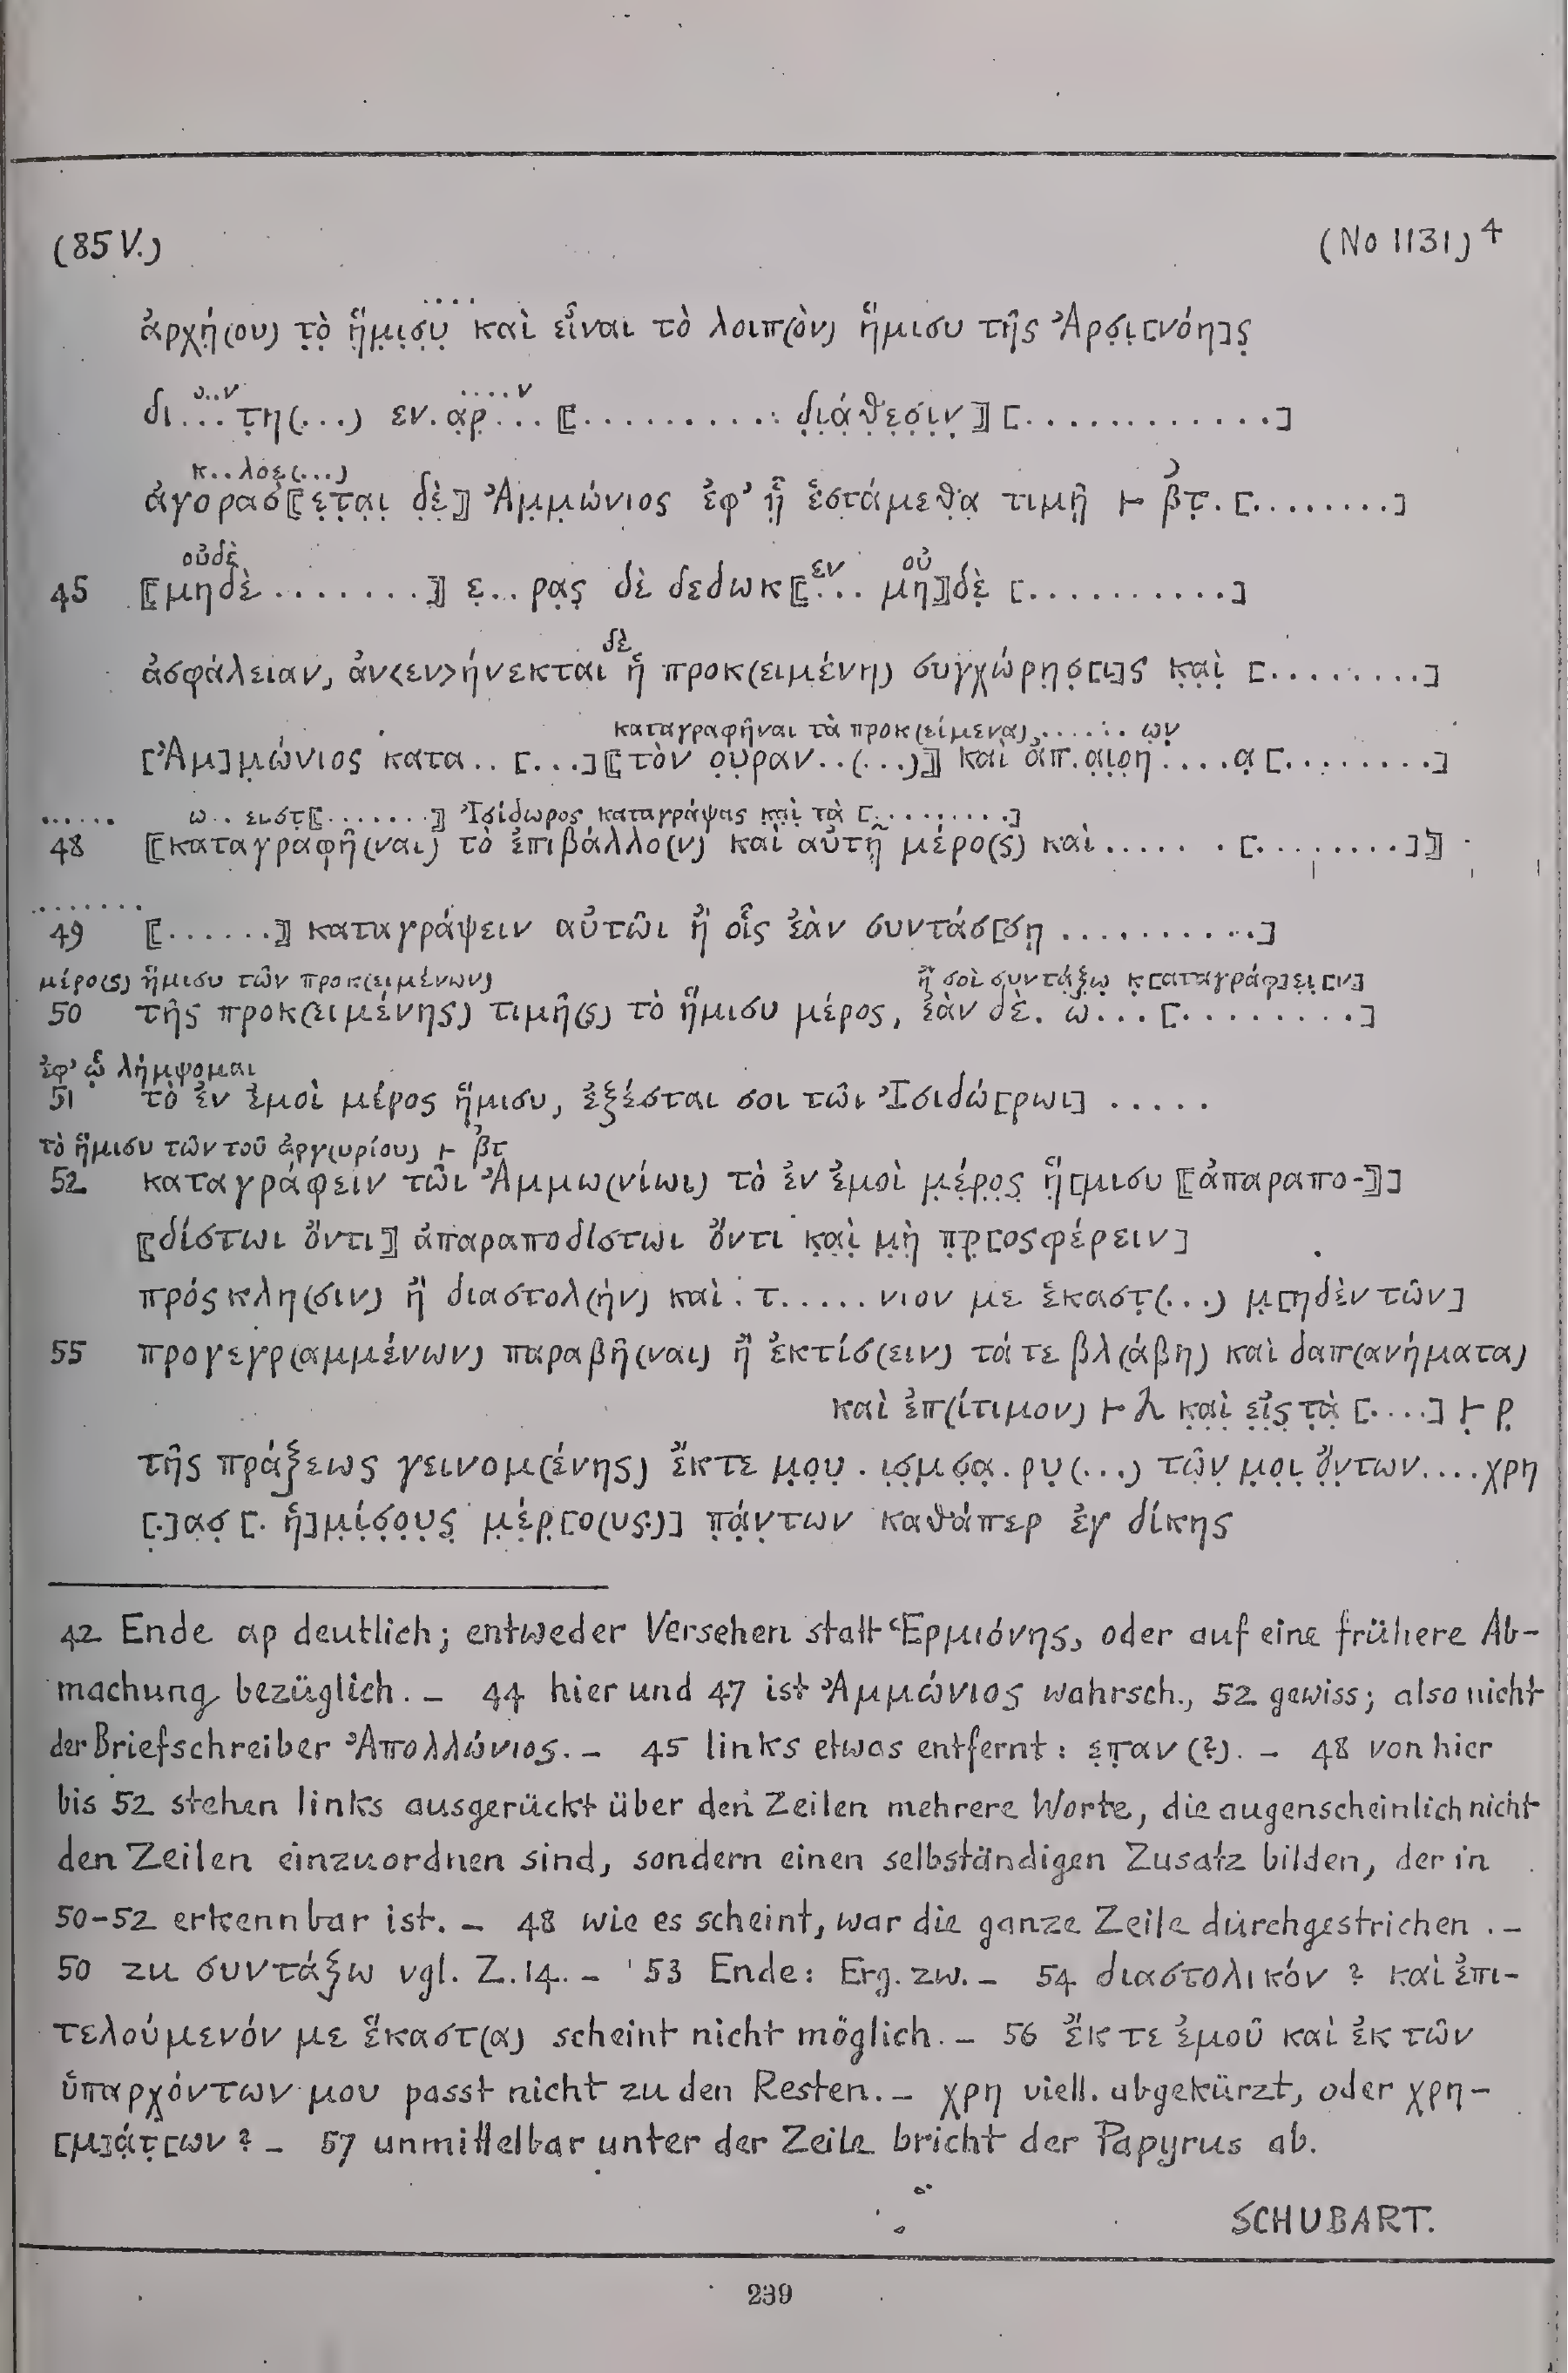 (85 V.) (No 1131) 4
ἀρχή(ου) τ̣ὸ̣ ἥ̣μ̣ι̣σ̣υ̣ καὶ εἶναι τὸ λοιπ(ὸν) ἥμισυ τῆς Ἀρσ̣ι̣[νόη]ς̣
ο..ν ....ν
δι...τ̣η(...) εν.α̣ρ̣...⟦..........δ̣ι̣ά̣θ̣ε̣σ̣ι̣ν̣⟧[............]
κ..λοε(...)
ἀγορασ⟦ε̣τ̣α̣ι̣ δ̣ὲ̣⟧ Ἀμ̣μ̣ώνιος ἐφ' ᾗ̣ ἑστάμεθα̣ τιμῇ ⊢ βτ̣.[........]
οὐδὲ εν οὐ
45 ⟦μηδὲ........⟧ ε̣..ρα̣ς̣ δὲ δεδωκ⟦... μὴ⟧δὲ̣ [..........]
δὲ
ἀσφάλειαν, ἀν<εν>ήνεκται ἡ προκ(ειμένη) συγχώρη̣σ̣[ι]ς κ̣α̣ὶ̣ [........]
καταγραφῆναι τὰ προκ(είμενα)....... ω̣ν̣
[Ἀμ]μ̣ώνιος κατα..[...]⟦τὸν ο̣υ̣ραν..(...)⟧ καὶ ἀπ.α̣ι̣ο̣η....α̣[........]
...... ω..ειστ̣⟦.......⟧ Ἰσίδωρος καταγράψας κ̣α̣ὶ̣ τὰ [.........]
48 ⟦καταγραφῆ(ναι) τὸ ἐπιβάλλο(ν) καὶ αὐτῇ μέρο(ς) καὶ......[........]⟧
........
49 ⟦......⟧ καταγράψειν αὐτῶι ἢ οἷς ἐὰν συντάσ[ση ..........]
μέρο(ς) ἥμισυ τῶν προκ(ειμένων) ἢ σοὶ συ̣ντάξ̣ω̣ κ̣[αταγράφ]ε̣ι̣[ν]
50 τῆς προκ(ειμένης) τιμῆ(ς) τὸ ἥμισυ μέρος, ἐὰν δὲ. ω...[.........]
ἐφ' ᾧ λήμψομαι
51 τὸ ἐν ἐμοὶ μέρος ἥμισυ, ἐξέσται σοι τῶι Ἰσιδώ[ρωι] .....
τὸ ἥμισυ τῶν τοῦ ἀργ(υρίου) ⊢ βτ
52 καταγράφειν τῶι Ἀμμω(νίωι) τὸ ἐν ἐμοὶ μ̣έ̣ρ̣ο̣ς̣ ἥ̣[μισυ ⟦ἀπαραπο-⟧]
⟦δίστωι ὄντι⟧ ἀπαραποδίστωι ὄντι κ̣α̣ὶ̣ μ̣ὴ̣ π̣ρ̣[οσφέρειν]
πρόσκλη(σιν) ἢ διαστολ(ὴν) καὶ.τ.....νιον με ἑκαστ̣(...) μ̣[ηδὲν τῶν]
55 προγεγρ(αμμένων) παραβῆ(ναι) ἢ ἐκτίσ(ειν) τά τε βλ(άβη) καὶ δαπ(ανήματα)
καὶ ἐπ(ίτιμον) ⊢ λ κ̣α̣ὶ̣ ε̣ἰ̣ς̣ τ̣ὰ̣ [....] ⊢ ρ̣
τῆς πράξεως γεινομ(ένης) ἔκ τε μ̣ο̣υ̣.ι̣σ̣μ̣σ̣α̣.ρυ̣(...) τῶ̣ν̣ μ̣ο̣ι̣ ὄ̣ντων....χρη
[.]ασ̣[. ἡ]μ̣ί̣σ̣ο̣υ̣ς̣ μ̣έ̣ρ̣[ο(υς)] π̣ά̣ν̣των καθάπερ ἐγ δίκης
42 Ende αρ deutlich; entweder Versehen statt Ἑρμιόνης, oder auf eine frühere Ab-
machung bezüglich. – 44 hier und 47 ist Ἀμμώνιος wahrsch., 52 gewiss; also nicht
der Briefschreiber Ἀπολλώνιος. – 45 links etwas entfernt: ε̣π̣αν (?). – 48 von hier
bis 52 stehen links ausgerückt über den Zeilen mehrere Worte, die augenscheinlich nicht
den Zeilen einzuordnen sind, sondern einen selbständigen Zusatz bilden, der in
50-52 erkennbar ist. – 48 wie es scheint, war die ganze Zeile durchgestrichen. –
50 zu συντάξω vgl. Z. 14. – 53 Ende: Erg. zw. – 54 διαστολικόν? καὶ ἐπι-
τελούμενόν με ἕκαστ(α) scheint nicht möglich. – 56 ἔκ τε ἐμοῦ καὶ ἐκ τῶν
ὑπαρχόντων μου passt nicht zu den Resten. – χρη viell. abgekürzt, oder χρη-
[μ]ά̣τ̣[ων? – 57 unmittelbar unter der Zeile bricht der Papyrus ab.
SCHUBART.
239